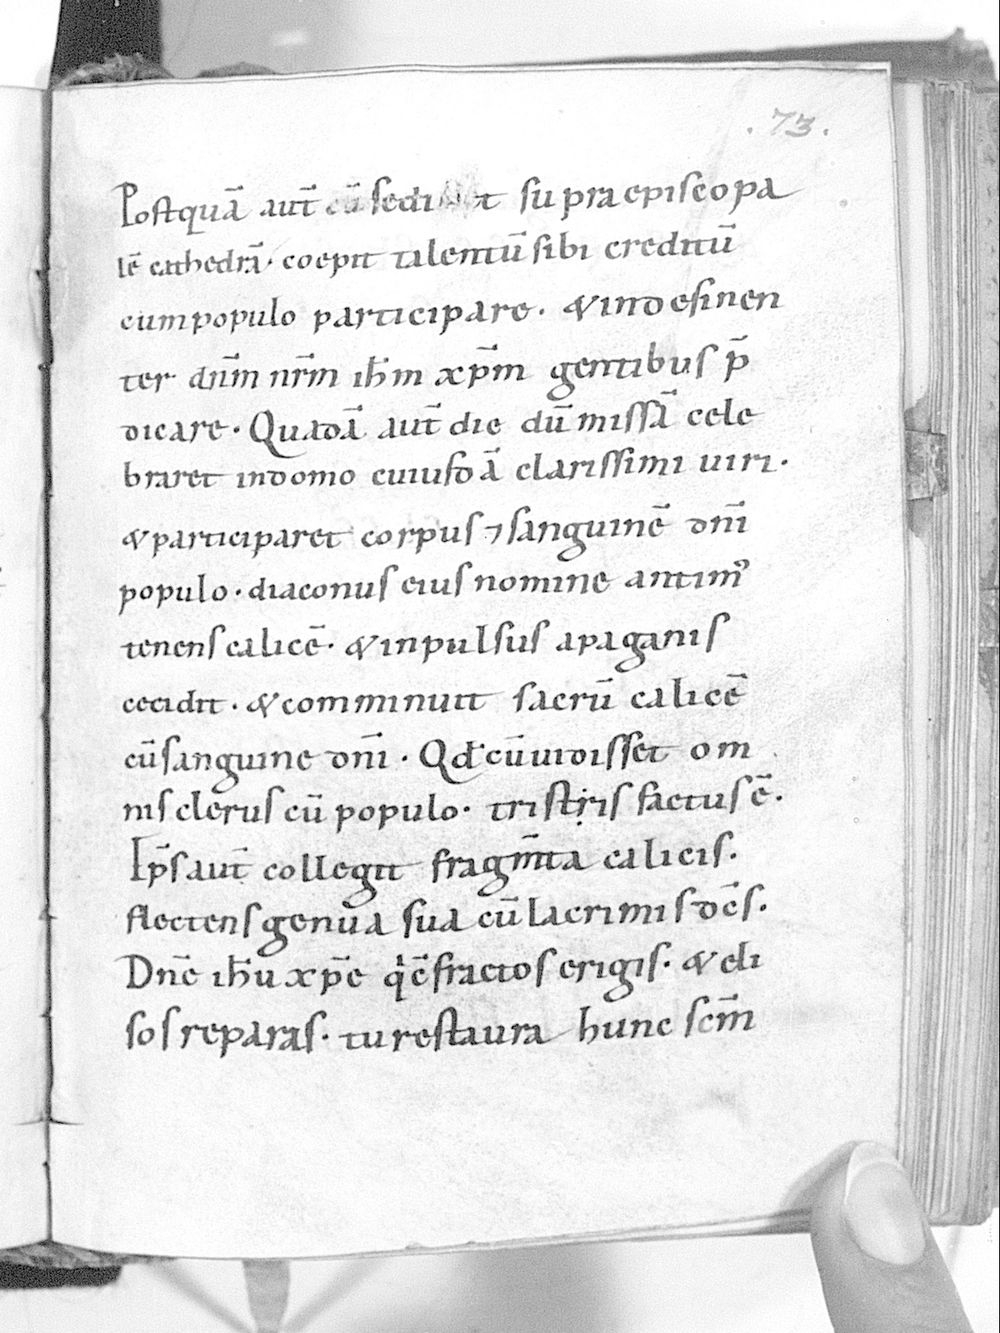 .73.
Postquā aut̄ cū sedisset supra episcopa
lē cathedrā· coepit talentū sibi creditū
cum populo participare· & indesinen
ter dn̄m nr̄m ih̄m xp̄m gentibus p̄
dicare· Quadā aut̄ die dū missā cele
braret in domo cuiusdā clarissimi uiri·
& participaret corpus ⁊ sanguinē dn̄i
populo· diaconus eius nomine antim᾽
tenens calicē· & inpulsus a paganis
cecidit· & comminuit sacrū calicē
cū sanguine dn̄i· Qd̄ cū uidisset om
nis clerus cū populo· tristris factus ē·
Ip̄s aut̄ collegit fragm̄ta calicis·
flectens genua sua cū lacrimis dc̄s·
Dn̄e ih̄u xp̄e q̄ c̄fractos erigis· & eli
sos reparas· tu restaura hunc sc̄m